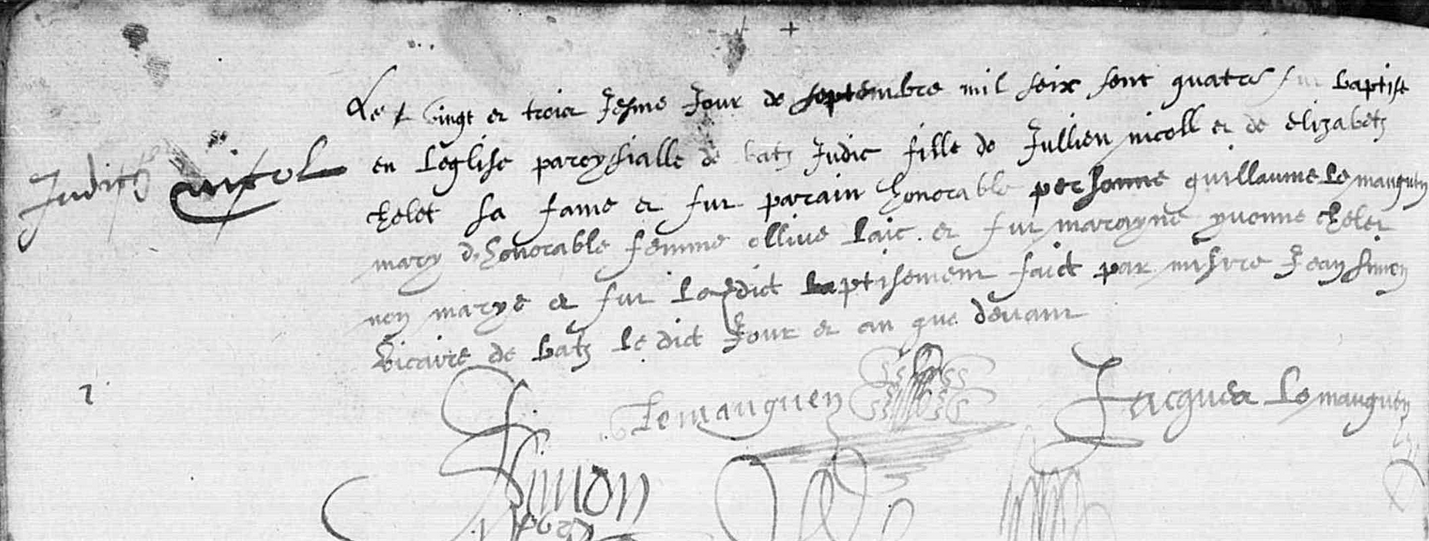 Le vingt et trois Jesme Jour de septembre mil seix sent quatre fut baptise
Judith nicol
en Leglise paroyssialle de batz Judic fille de Jullien nicoll et de elizabetz
chelet sa fame et fut parain honorable personne guillaume Le mauguen
mary d. honorable femme ollive Laic. et fut marayne yvonne chelet
non marye et fut Ledict baptisement faict par missire Jean Simon
vicaire de batz Ledict Jour et an que devant
Lemauguen
Jacques Lemauguen
J Simon